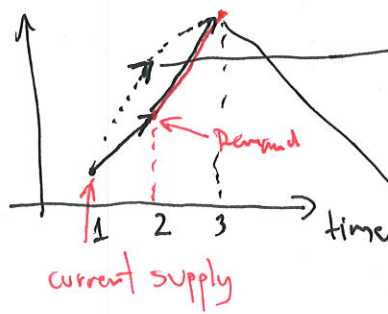 Demand
1 2 3 time
current supply